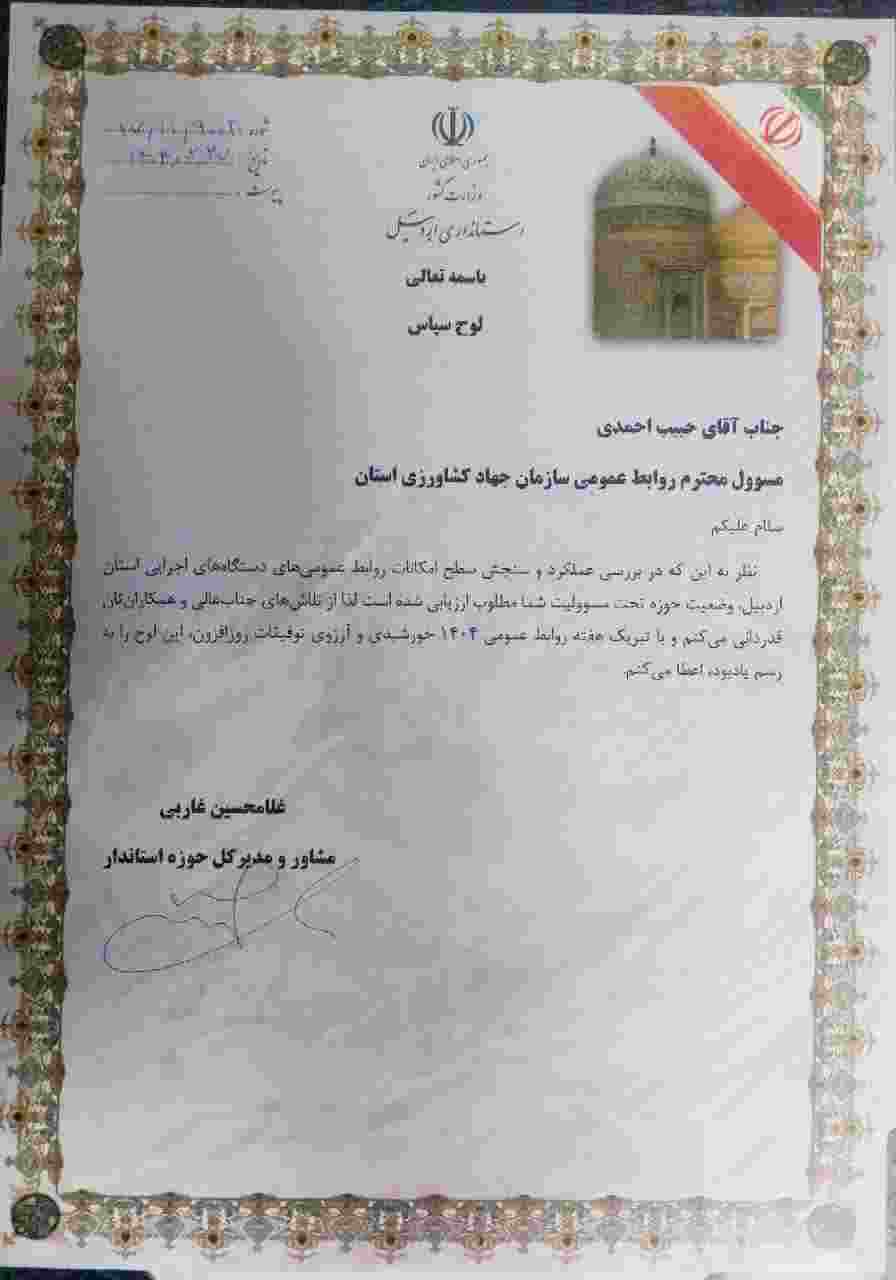 جمهوری اسلامی ایران
وزارت کشور
استانداری اردبیل
شماره
تاریخ
پیوست
باسمه تعالی
لوح سپاس
جناب آقای حبیب احمدی
مسوول محترم روابط عمومی سازمان جهاد کشاورزی استان
سلام علیکم
نظر به این که در بررسی عملکرد و سنجش سطح امکانات روابط عمومی‌های دستگاه‌های اجرایی استان
اردبیل، وضعیت حوزه تحت مسوولیت شما مطلوب ارزیابی شده است لذا از تلاش‌های جناب‌عالی و همکاران‌تان
قدردانی می‌کنم و با تبریک هفته روابط عمومی ۱۴۰۴ خورشیدی و آرزوی توفیقات روزافزون، این لوح را به
رسم یادبود، اعطا می‌کنم.
غلامحسین غاربی
مشاور و مدیرکل حوزه استاندار